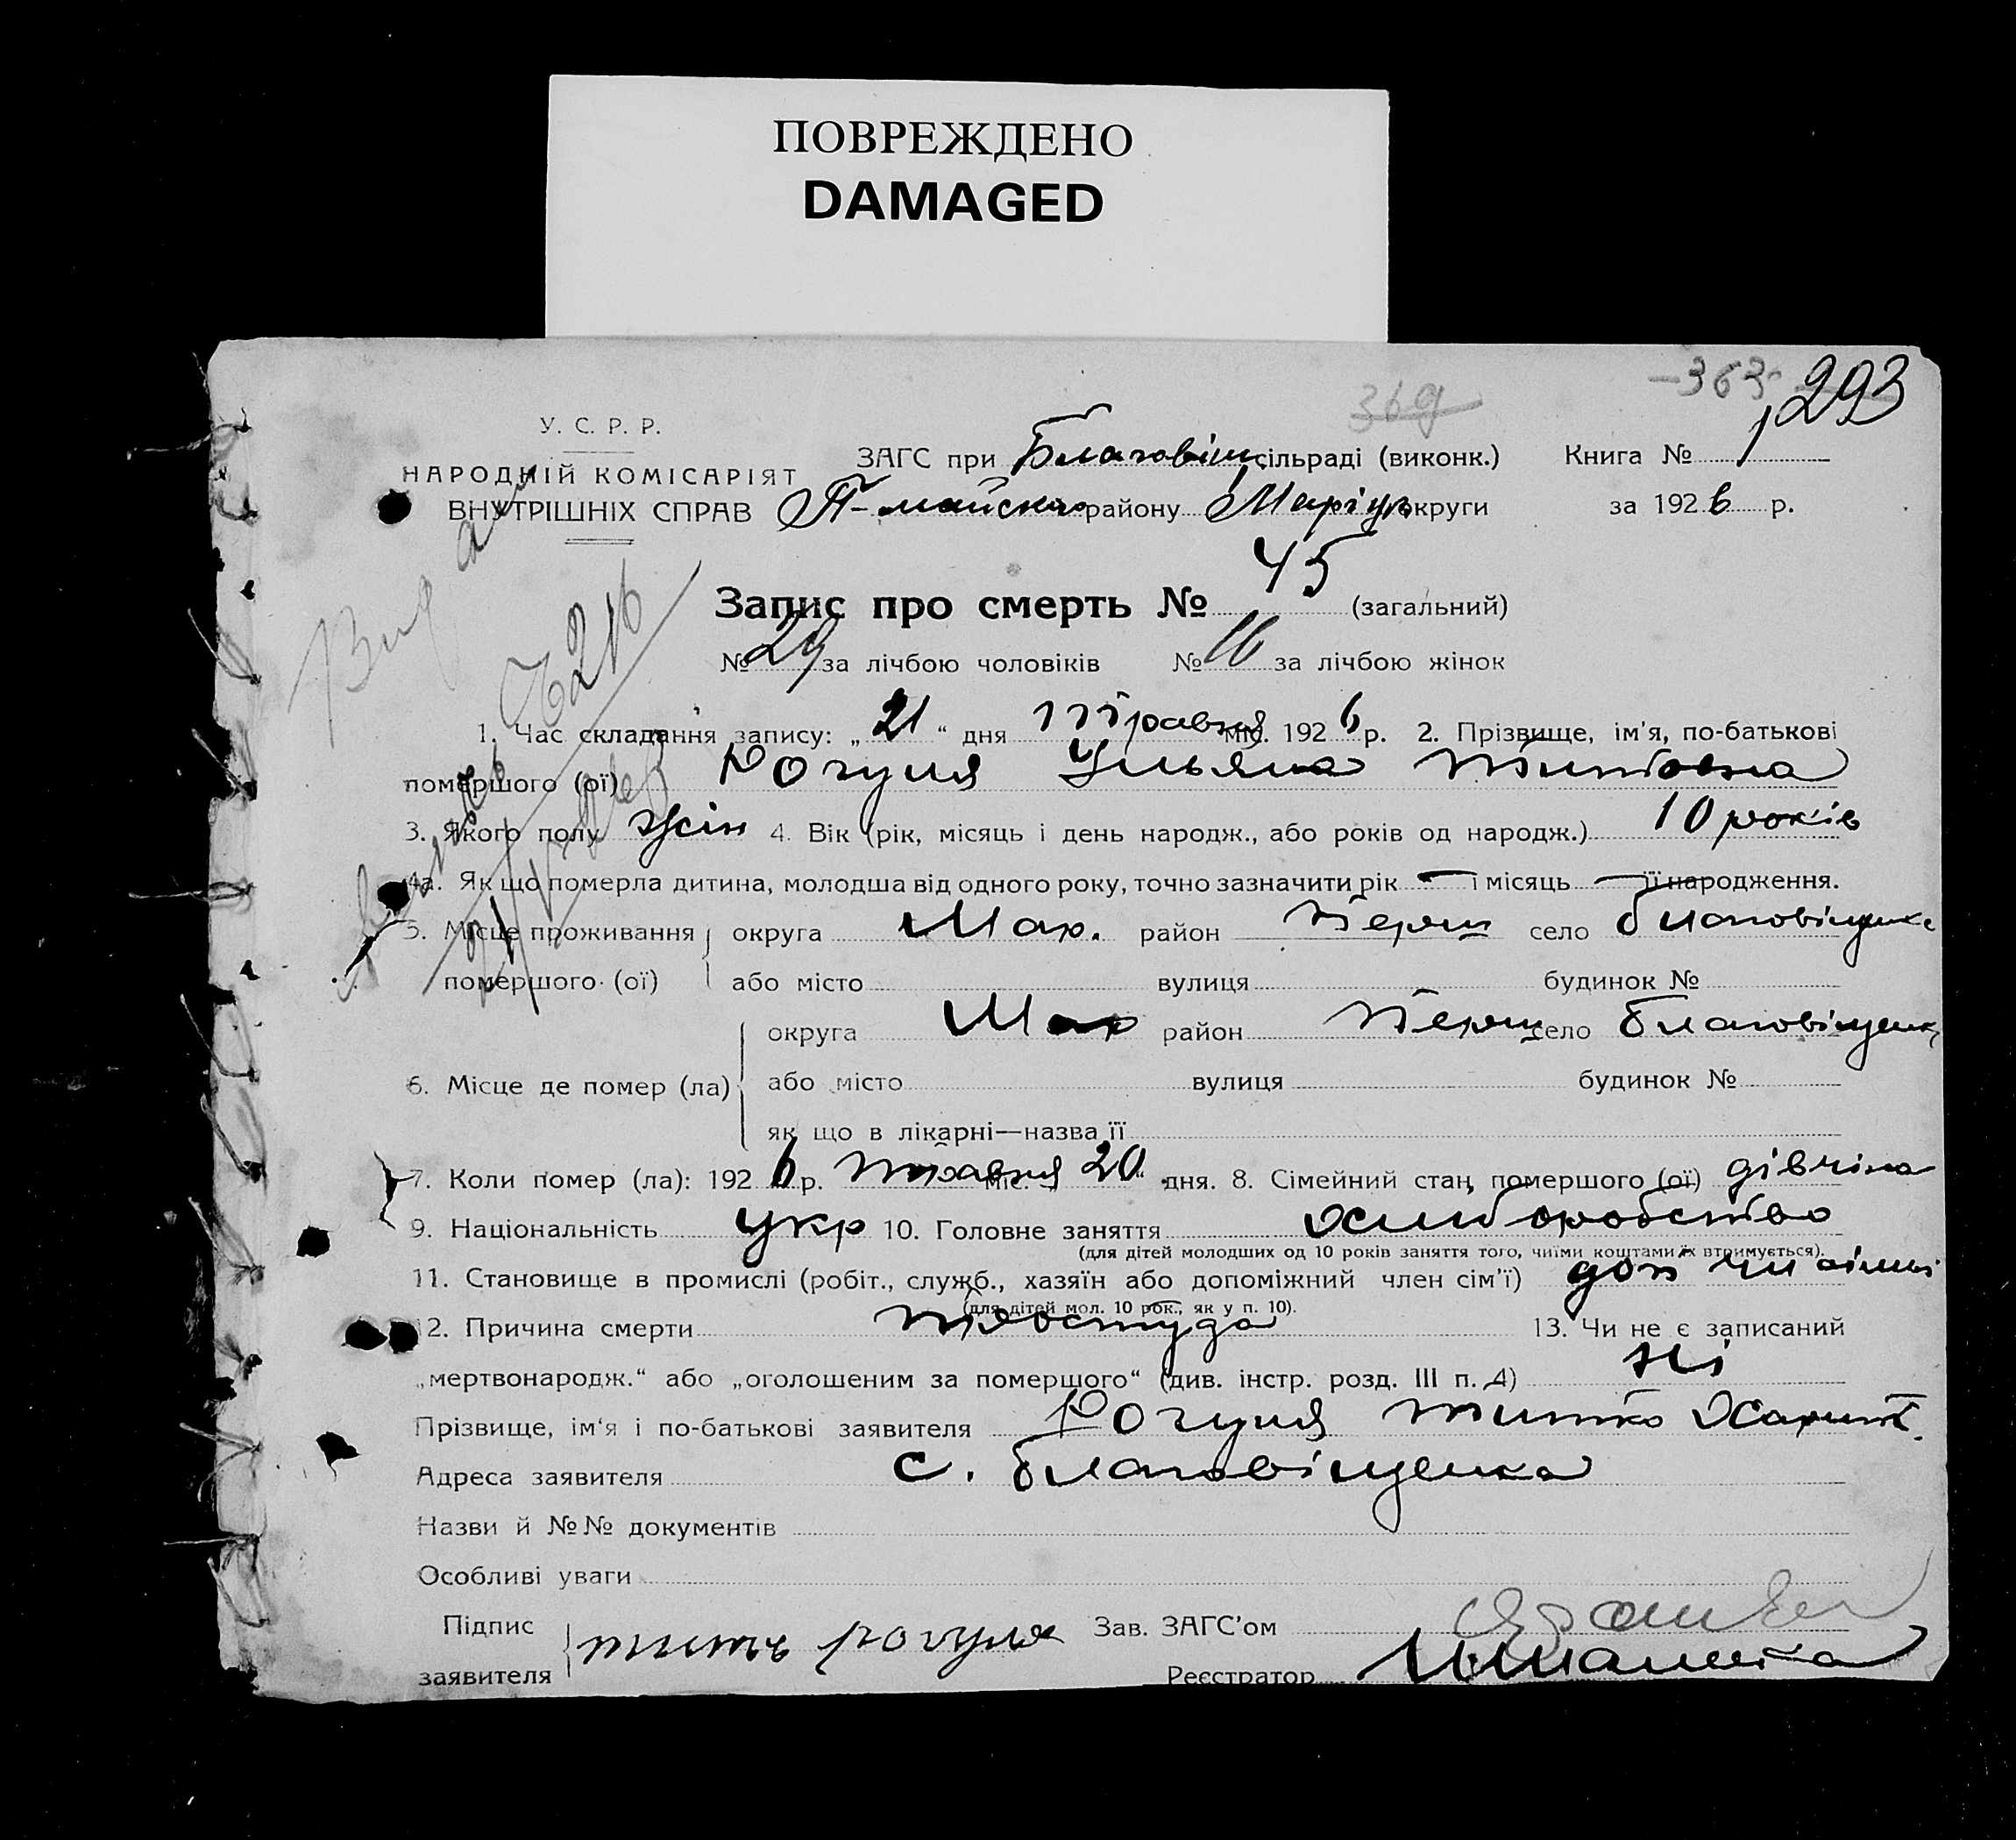 ПОВРЕЖДЕНО
DAMAGED
369
-363-
293
У. С. Р. Р.
НАРОДНІЙ КОМІСАРІЯТ
ВНУТРІШНІХ СПРАВ
ЗАГС при Благовіщ. сільраді (виконк.) Книга № 1
П-майского району Маріуп. округи за 1926 р.
Запис про смерть № 45 (загальний)
№ 29 за лічбою чоловіків № 16 за лічбою жінок
1. Час складання запису: „21“ дня травня міс. 1926 р. 2. Прізвище, ім'я, по-батькові
помершого (ої) Рогуля Ульяна Титовна
3. Якого полу жін 4. Вік (рік, місяць і день народж., або років од народж.) 10 років
4а. Як що померла дитина, молодша від одного року, точно зазначити рік — і місяць — її народження.
5. Місце проживання округа Мар. район Перш село благовіщенка
помершого (ої) або місто вулиця будинок №
округа Мар район Перш село благовіщенк
6. Місце де помер (ла) або місто вулиця будинок №
як що в лікарні—назва її
7. Коли помер (ла): 1926 р. травня міс. „20“ дня. 8. Сімейний стан помершого (ої) дівчіна
9. Національність укр 10. Головне заняття хлиборобство
(для дітей молодших од 10 років заняття того, чиїми коштами їх втримується).
11. Становище в промислі (робіт., служб., хазяїн або допоміжний член сім'ї) доп чл сімі
(для дітей мол. 10 рок., як у п. 10).
12. Причина смерти простуда 13. Чи не є записаний
„мертвонародж.“ або „оголошеним за помершого“ (див. інстр. розд. III п. 4) ні
Прізвище, ім'я і по-батькові заявителя Рогуля Титко Харит.
Адреса заявителя с. благовіщенка
Назви й №№ документів
Особливі уваги
Підпис
заявителя титъ рогуля Зав. ЗАГС'ом
Реєстратор